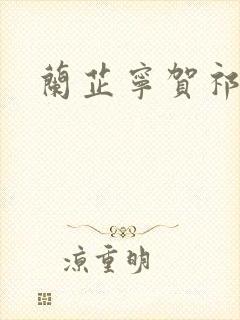 蘭芷寧賀祁
涼重明